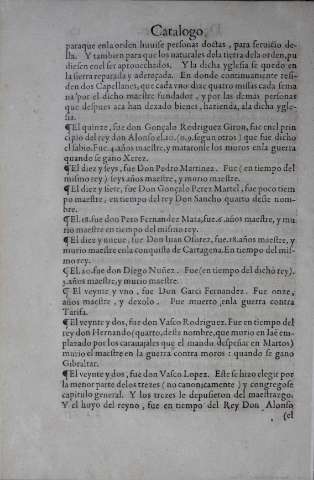 Catalogo.
paraque enla orden huuiesse personas doctas, para seruicio de-
lla. Y tambien para que los naturales dela tierra dela orden, pu
diesen enel ser aprouechados. Y la dicha yglesia se quedo en
la sierra reparada y adereçada. En donde continuamente resi-
den dos Capellanes, que cada vno dize quatro missas cada sema
na por el dicho maestre fundador, y por las demas personas
que despues aca han dexado bienes, hazienda, ala dicha ygle-
sia.
¶El quinze, fue don Gonçalo Rodriguez Giron, fue enel prin
cipio del rey don Alonso el .10. (.o .9. segun otros) que fue dicho
el sabio. Fue .4. años maestre, y mataronle los moros enla guerra
quando se gaño Xerez.
¶El diez y seys, fue Don Pedro Martinez. Fue (en tiempo del
mismo rey) seys años maestre, y murio maestre.
¶El diez y siete, fue Don Gonçalo Perez Martel, fue poco tiem
po maestre, en tiempo del rey Don Sancho quarto deste nom-
bre.
¶El .18. fue don Pero Fernandez Mata, fue .6. años maestre, y mu
rio maestre en tiempo del mismo rey.
¶El diez y nueue, fue Don Iuan Osorez, fue .18. años maestre, y
murio maestre enla conquista de Cartagena. En tiempo del mis-
mo rey.
¶El .20. fue don Diego Nuñez. Fue (en tiempo del dicho rey).
3. años maestre, y murio maestre.
¶El veynte y vno, fue Don Garci Fernandez. Fue onze,
años maestre, y dexolo. Fue muerto, enla guerra contra
Tarifa.
¶El veynte y dos, fue don Vasco Rodriguez. Fue en tiempo del
rey don Hernando (quarto, deste nombre, que murio en Iaē em-
plazado por los carauajales que el mando despeñar en Martos)
murio el maestre en la guerra contra moros: quando se gano
Gibraltar.
¶El veynte y dos, fue don Vasco Lopez. Este se hizo elegir por
la menor parte delos trezes (no canonicamente) y congregose
capitulo general. Y los trezes le depusieron del maestrazgo.
Y el huyo del reyno, fue en tiempo del Rey Don Alonso
(el